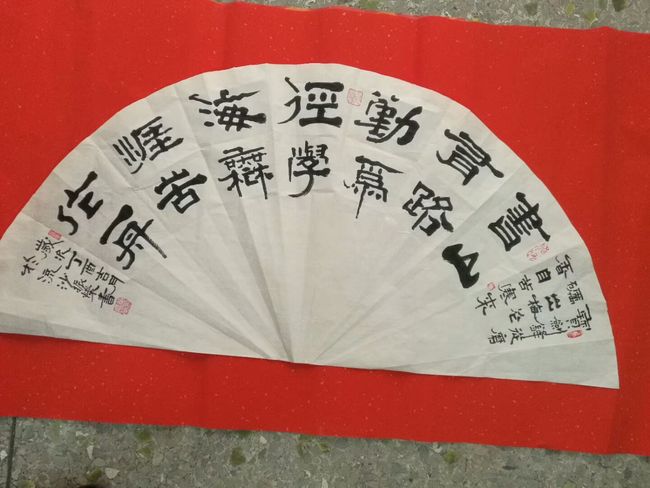 書山
有路
勤爲
徑學
海無
涯苦
作舟
寶劍鋒從磨
礪出梅花
香自苦寒来
歲次丁酉吉月
於流沙振榮書